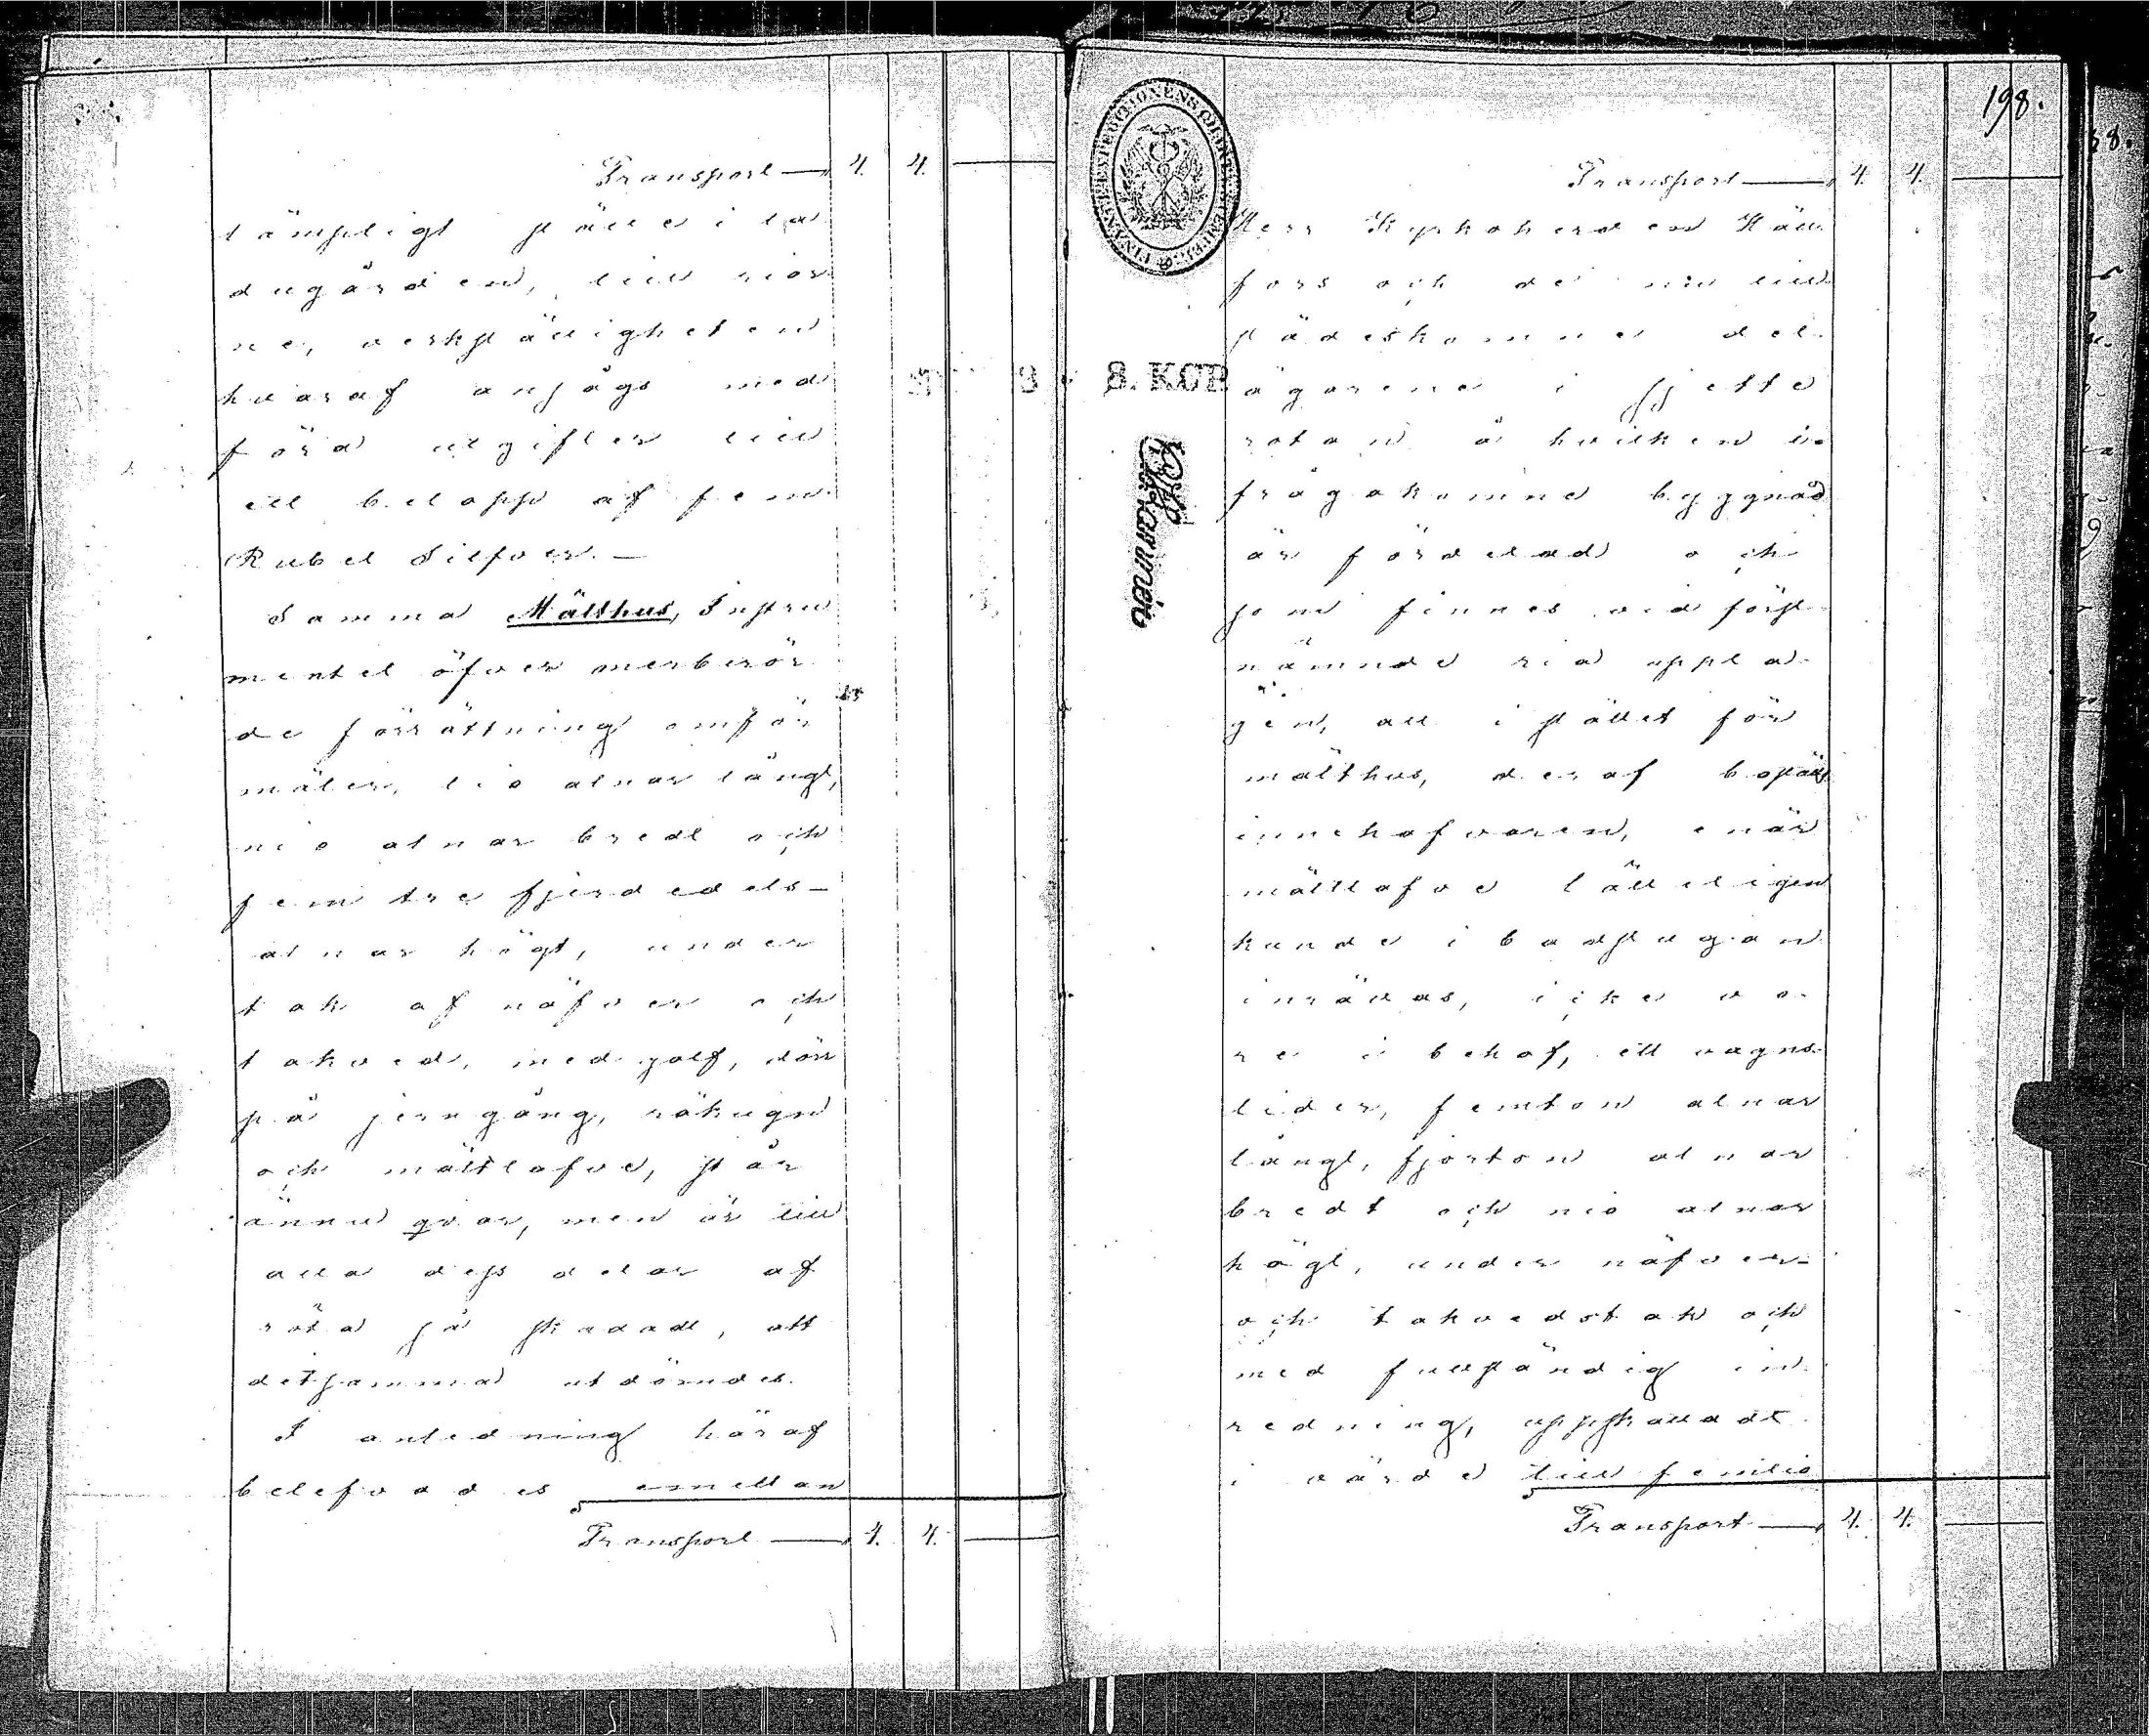 Transport — 4. 4. —
lämpligt ställe i la
dugården, till rior
ne, verkställigheten
hvaraf ansågs med
föra utgifter till
ett belopp af fem
Rubel Silfver. —
Samma Mälthus, Instru
mentet öfver merberör
de förrättning omför
mäler, tio alnar långt,
nio alnar bredt och
fem tre fjerdedels-
alnar högt, under
tak af näfver och
takved, med golf, dörr
på jerngång, rökugn
och mältlafve, står
ännu qvar, men är till
alla dess delar af
röta så skadadt, att
detsamma utdömdes.
I anledning häraf
belefvades emellan
Transport — 4. 4. —
198.
Transport — 4. 4. —
Herr Kyrkoherden Häll
fors och de nu till
städeskomne del
ägarene i sjette
rotan å hvilken i
frågakomne byggnad
är fördelad och
som finnes vid först
nämnde ria uppta
gen, att i stället för
mälthus, deraf boställs
innehafvaren, enär
mältlafve lätteligen
kunde i badstugan
inrättas, icke vo
re i behof, ett vagns
lider, femton alnar
långt, fjorton alnar
bredt och nio alnar
högt, under näfver-
och takvedstak och
med fullständig in
redning, uppskattadt
i värde till femtio
Transport — 4. 4. —
8. KOP